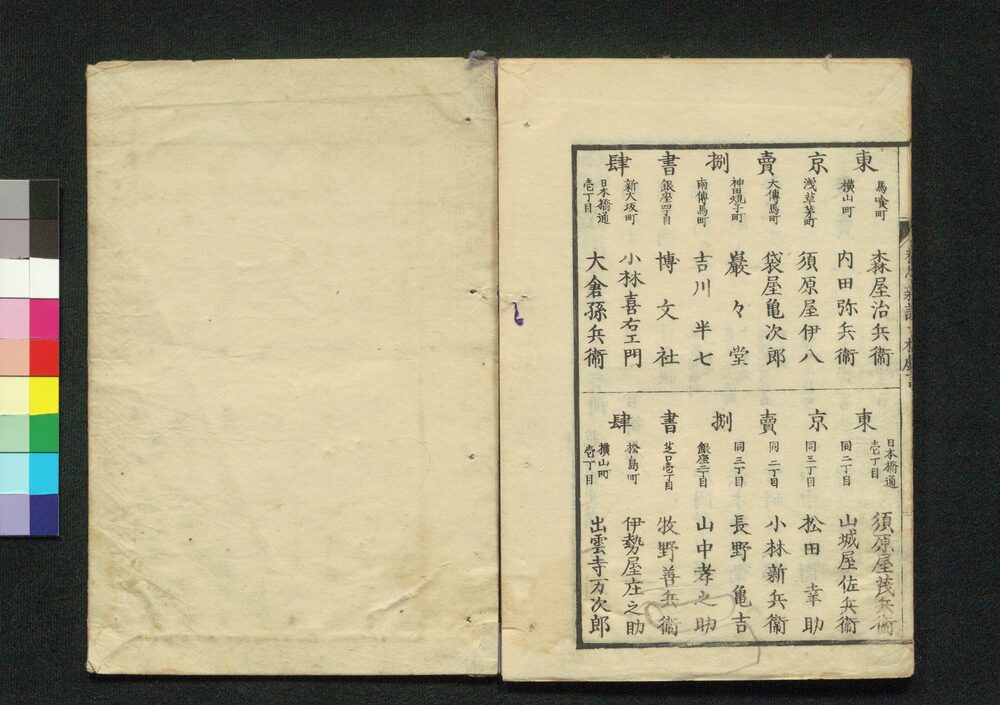 東京賣捌書肆
馬喰町
森屋治兵衞
横山町
内田弥兵衞
浅草茅町
須原屋伊八
大傳馬町
袋屋亀次郎
神田鍛子町
巖々堂
南傳馬町
吉川半七
銀座四丁目
博文社
新大坂町
小林喜右エ門
日本橋通
壱丁目
大倉孫兵衞
東京賣捌書肆
日本橋通
壱丁目
須原屋茂兵衞
同二丁目
山城屋佐兵衞
同三丁目
松田幸助
同二丁目
小林新兵衞
同三丁目
長野亀吉
銀座二丁目
山中孝之助
芝口壱丁目
牧野善兵衞
松島町
伊勢屋庄之助
横山町
壱丁目
出雲寺万次郎